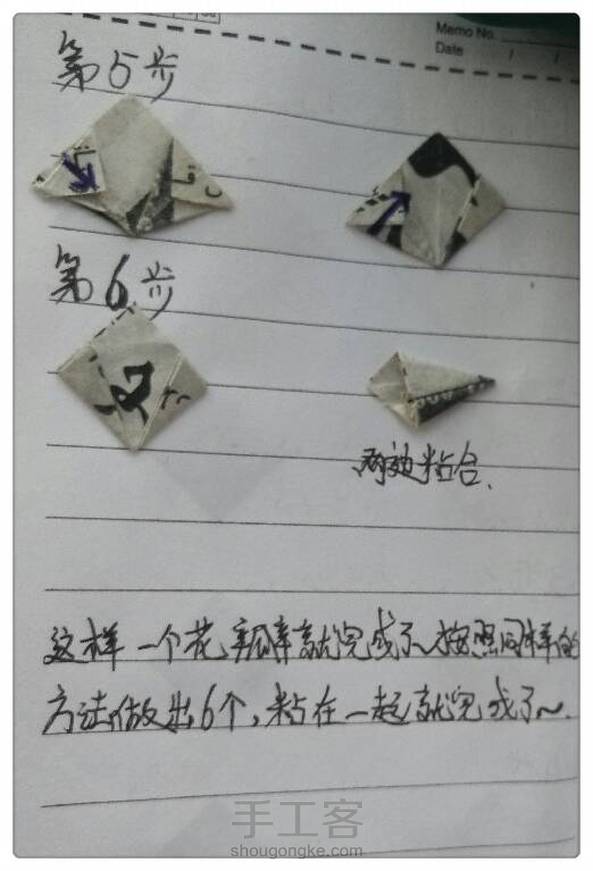 Memo No.
Date / /
第5步
第6步
两边粘合、
这样一个花瓣就完成了~按照同样的
方法做出6个,粘在一起就完成了~.
手工客
shougongke.com